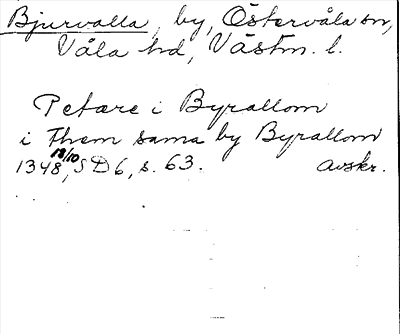 Bjurvalla, by, Östervåla sn,
Våla hd, Västm. l.
Petare i Byrallom
i them sama by Byrallom
1348 18/10, SD 6, s. 63. Avskr.